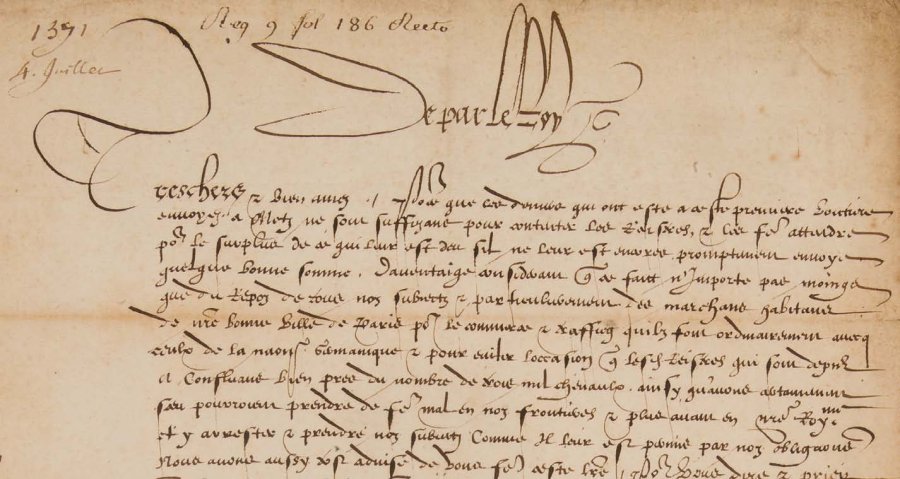 1571
Reg 9 fol 186 Recto
4. Juillet
De par le Roy
Treschers & bien amez Po^r ce que les deniers qui ont esté a ceste premiere voicture
envoyez a Metz ne sont suffizans pour contenter les Reistres, & les fe^r attendre
po^r le surplus de ce qui leur est deu sil ne leur est encores promptement envoyé
quelque bonne somme. Davantaige considerant q ce faict n'Importe pas moings
que du Repoz de tous noz subiectz & particulierement des marchans habitans
de nre bonne ville de Paris po^r le commerce & trafficq quilz font ordinairement avecq
ceulx de la nation Germanique & pour eviter loccasion q lesd Reistres qui sont
a Confluans bien pres du nombre de trois mil chevaulx
pourroient prendre de fe^r mal en noz frontieres & plus avant en nre Roy^me
et y arrester & prendre noz subiectz Comme Il leur est permis par noz obligaons
Nous avons aussy advisé de vous fe^r ceste lre po^r vous dire & prier